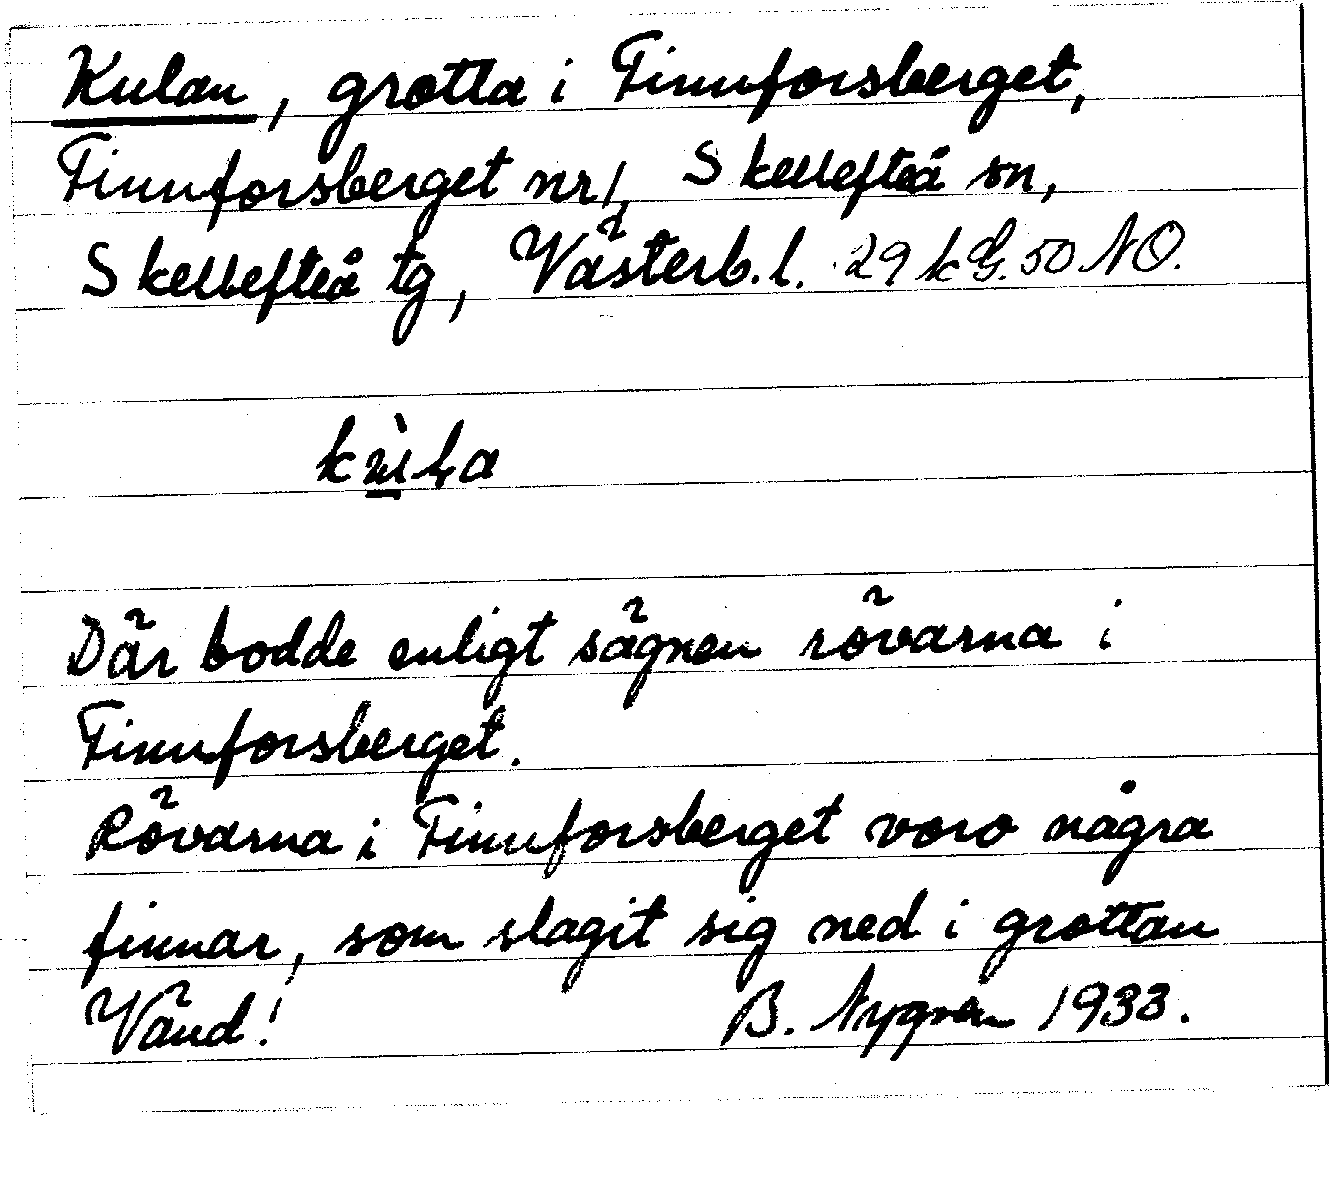 Kulan, grotta i Finnforsberget,
Finnforsberget nr 1, Skellefteå sn,
Skellefteå tg, Västerb.l. 29 k G. 50 NO.
Där bodde enligt sägnen rövarna i
Finnforsberget.
Rövarna i Finnforsberget voro några
finnar, som slagit sig ned i grottan
Vänd! B. Nygren 1933.